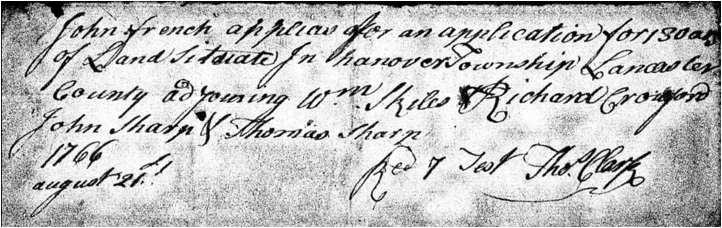 John french applies ffor an application for 130 acrs
of Land Situate In hanover Township Lancaster
County adjoining Wm Skiles & Richard Crawford
John Sharp & Thomas Sharp
1766
august 21st Red 7 Test Thos. Clark